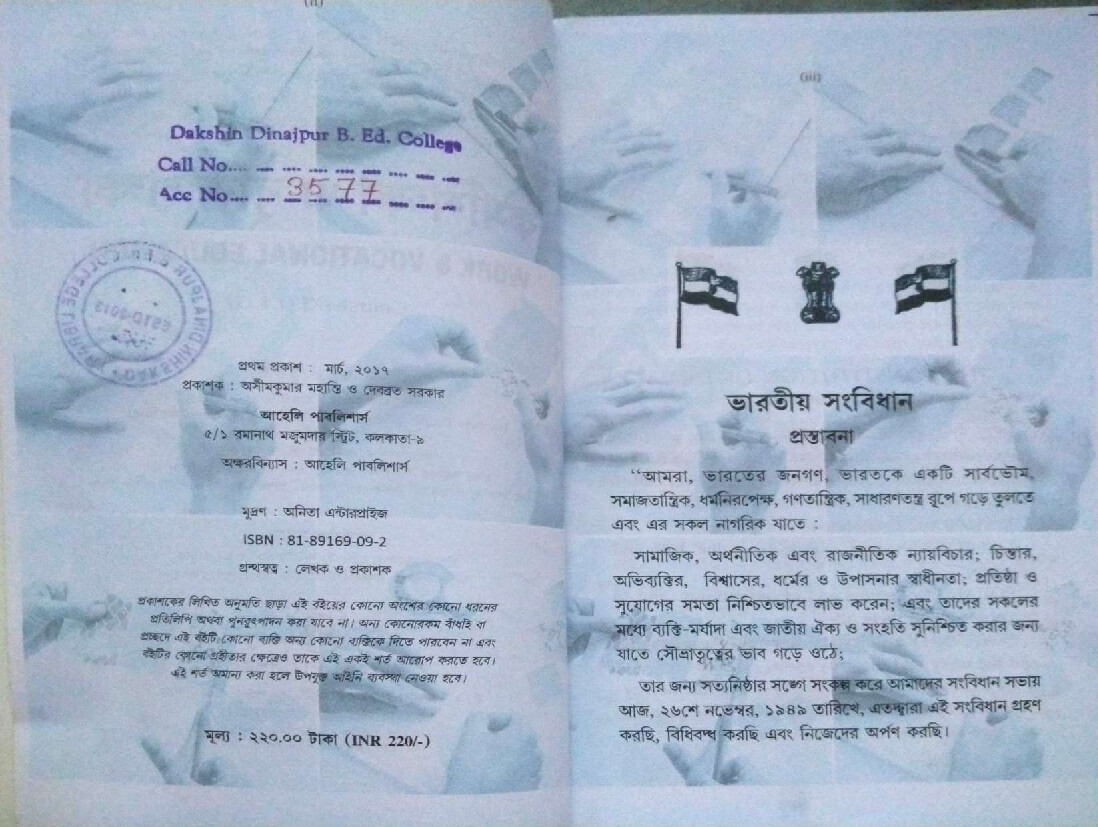 (ii)
Dakshin Dinajpur B. Ed. College
Call No....
Acc No.... 3577
প্রথম প্রকাশ : মার্চ, ২০১৭
প্রকাশক : অসীমকুমার মহান্তি ও দেবব্রত সরকার
আহেলি পাবলিশার্স
৫/১ রমানাথ মজুমদার স্ট্রিট, কলকাতা-৯
অক্ষরবিন্যাস : আহেলি পাবলিশার্স
মুদ্রণ : অনিতা এন্টারপ্রাইজ
ISBN : 81-89169-09-2
গ্রন্থস্বত্ব : লেখক ও প্রকাশক
প্রকাশকের লিখিত অনুমতি ছাড়া এই বইয়ের কোনো অংশের কোনো ধরনের
প্রতিলিপি অথবা পুনরুৎপাদন করা যাবে না। অন্য কোনোরকম বাঁধাই বা
প্রচ্ছদে এই বইটি কোনো ব্যক্তি অন্য কোনো ব্যক্তিকে দিতে পারবেন না এবং
বইটির কোনো গ্রহীতার ক্ষেত্রেও তাকে এই একই শর্ত আরোপ করতে হবে।
এই শর্ত অমান্য করা হলে উপযুক্ত আইনি ব্যবস্থা নেওয়া হবে।
মূল্য : ২২০.০০ টাকা (INR 220/-)
(iii)
ভারতীয় সংবিধান
প্রস্তাবনা
“আমরা, ভারতের জনগণ, ভারতকে একটি সার্বভৌম,
সমাজতান্ত্রিক, ধর্মনিরপেক্ষ, গণতান্ত্রিক, সাধারণতন্ত্র রূপে গড়ে তুলতে
এবং এর সকল নাগরিক যাতে :
সামাজিক, অর্থনীতিক এবং রাজনীতিক ন্যায়বিচার; চিন্তার,
অভিব্যক্তির, বিশ্বাসের, ধর্মের ও উপাসনার স্বাধীনতা; প্রতিষ্ঠা ও
সুযোগের সমতা নিশ্চিতভাবে লাভ করেন; এবং তাদের সকলের
মধ্যে ব্যক্তি-মর্যাদা এবং জাতীয় ঐক্য ও সংহতি সুনিশ্চিত করার জন্য
যাতে সৌভ্রাতৃত্বের ভাব গড়ে ওঠে;
তার জন্য সত্যনিষ্ঠার সঙ্গে সংকল্প করে আমাদের সংবিধান সভায়
আজ, ২৬শে নভেম্বর, ১৯৪৯ তারিখে, এতদ্দ্বারা এই সংবিধান গ্রহণ
করছি, বিধিবদ্ধ করছি এবং নিজেদের অর্পণ করছি।